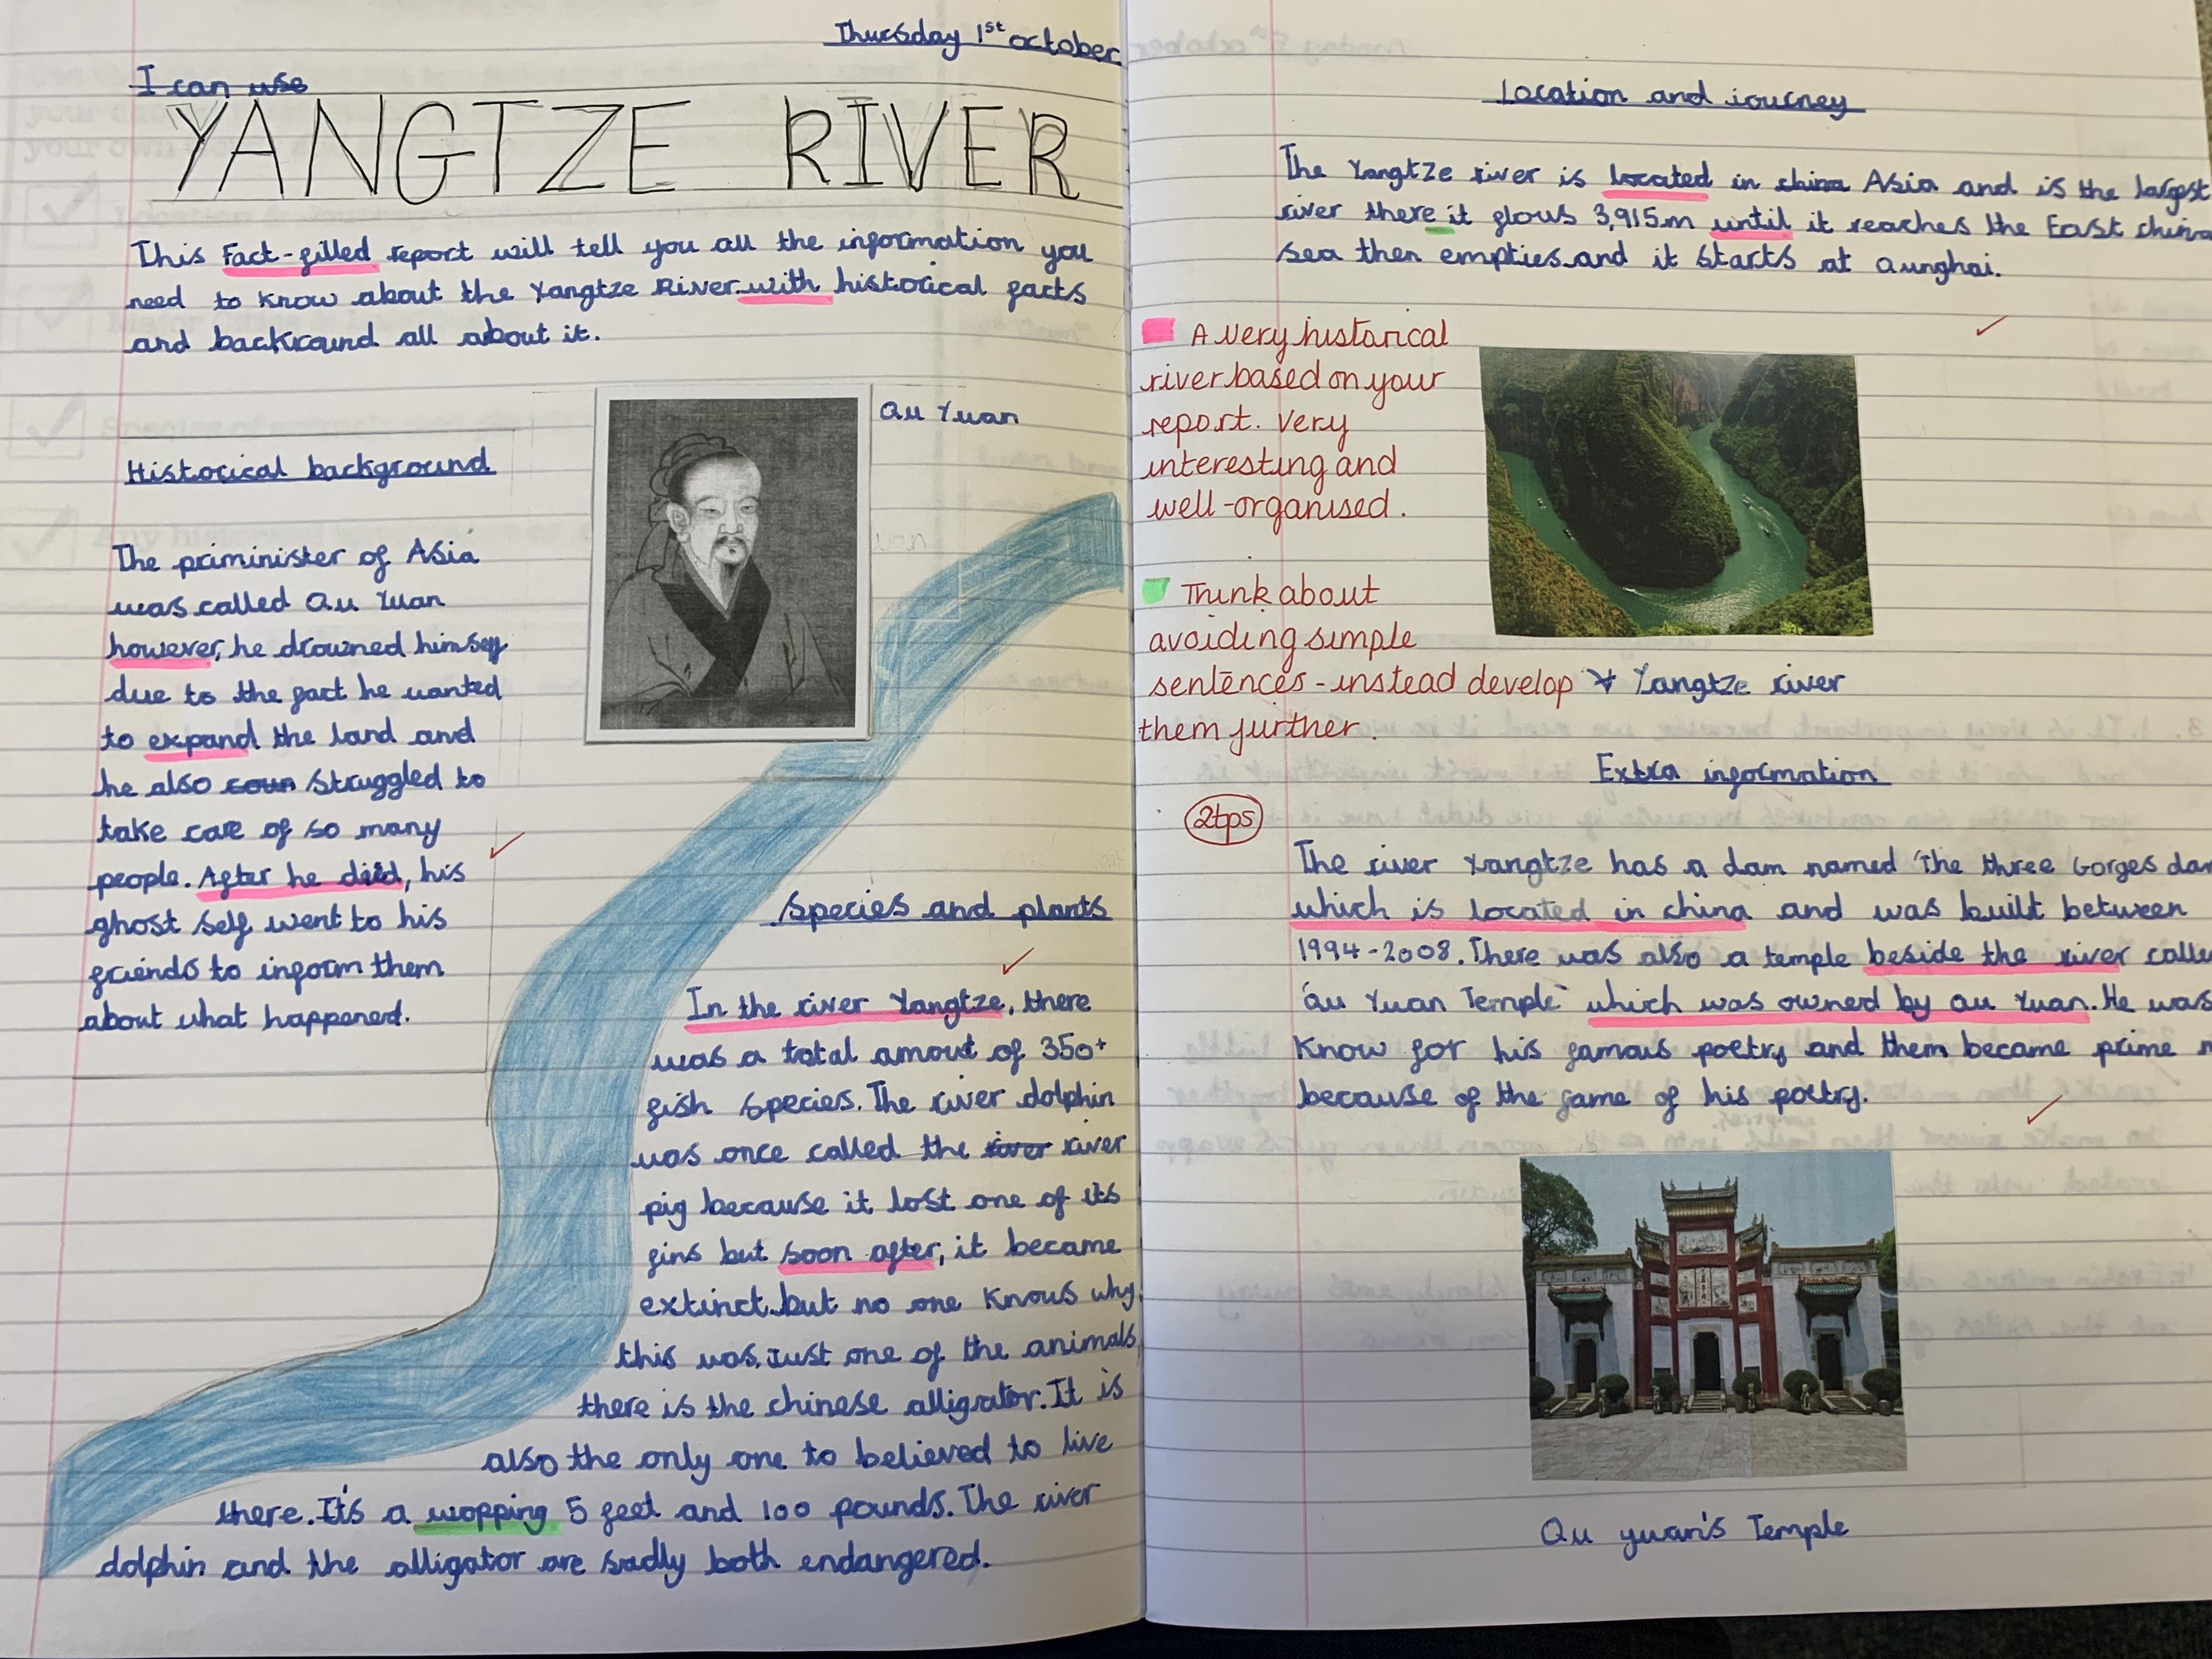 Thursday 1st october
I can use
YANGTZE RIVER
This Fact-filled report will tell you all the information you
need to know about the Yangtze River with historical facts
and backround all about it.
Qu Yuan
Historical background
The priminister of Asia
was called Qu Yuan
however, he drowned himself
due to the fact he wanted
to expand the land and
he also struggled to
take care of so many
people. After he died, his
ghost self went to his
friends to inform them
about what happened.
Species and plants
In the river Yangtze, there
was a total amout of 350+
fish species. The river dolphin
was once called the river river
pig because it lost one of its
fins but soon after, it became
extinct but no one knows why,
this was Just one of the animals,
there is the chinese alligator. It is
also the only one to believed to live
there. It's a wopping 5 feet and 100 pounds. The river
dolphin and the alligator are sadly both endangered.
Location and journey
The Yangtze river is located in china Asia and is the largest
river there it flows 3,915m until it reaches the East china
sea then empties and it starts at Qunghai.
A very historical
river based on your
report. Very
interesting and
well-organised.
Think about
avoiding simple
sentences - instead develop
them further.
Yangtze river
2tps
Extra information
The river Yangtze has a dam named 'The three Gorges dam
which is located in china and was built between
1994-2008. There was also a temple beside the river called
'Qu Yuan Temple' which was owned by Qu Yuan. He was
know for his famous poetry and them became prime m
because of the fame of his poetry.
Qu yuan's Temple